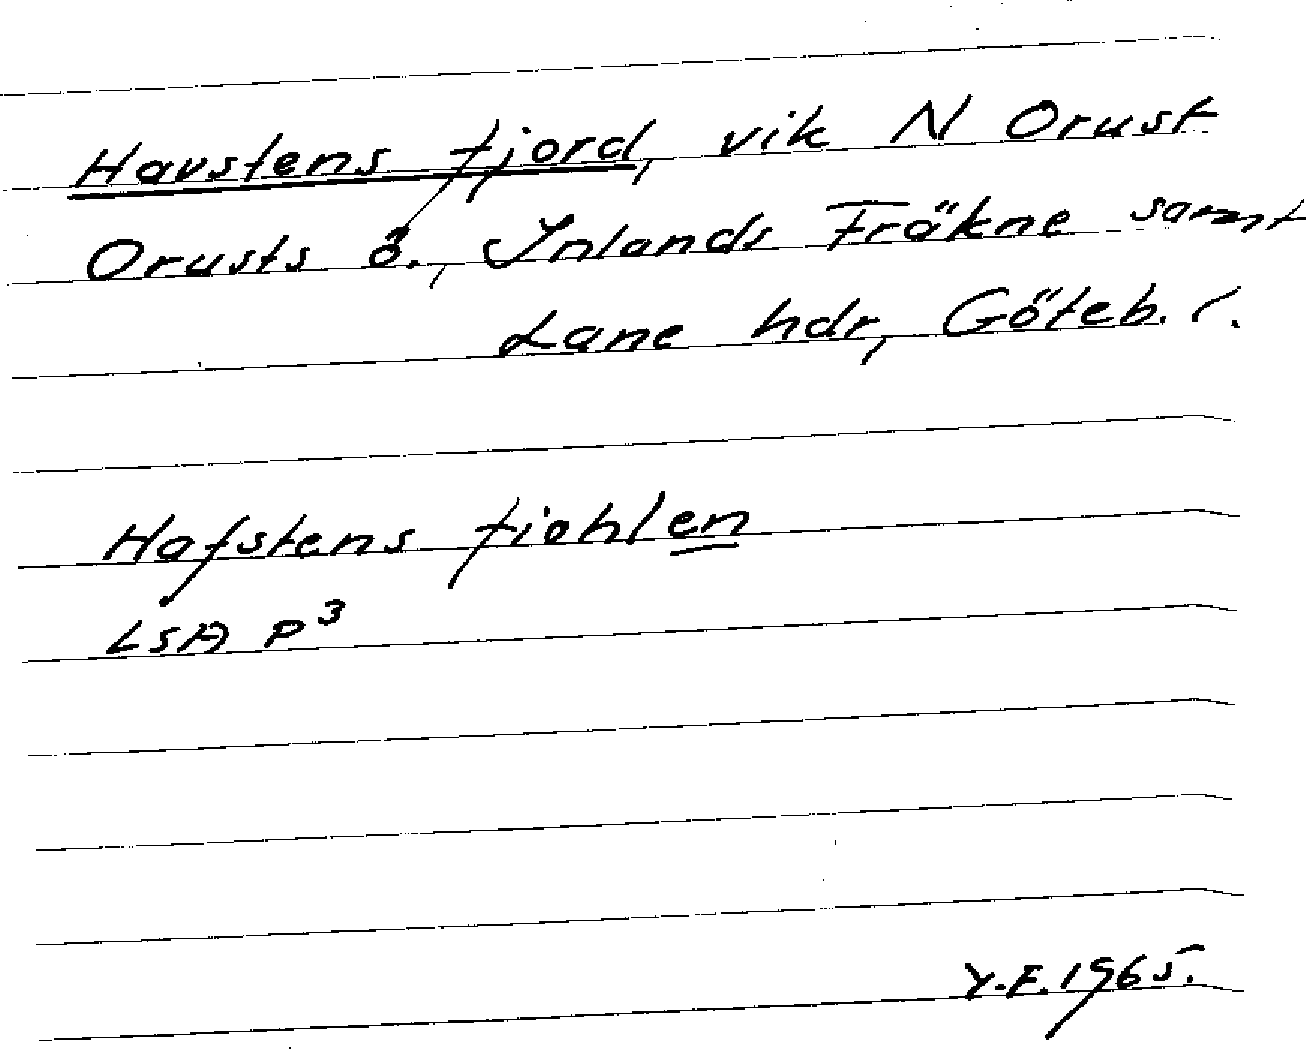 Havstens fjord, vik N Orust
Orusts ö., Inlands Fräkne samt
Lane hdr, Göteb. l.
Hafstens fiohlen
LSA P³
Y.F. 1965.